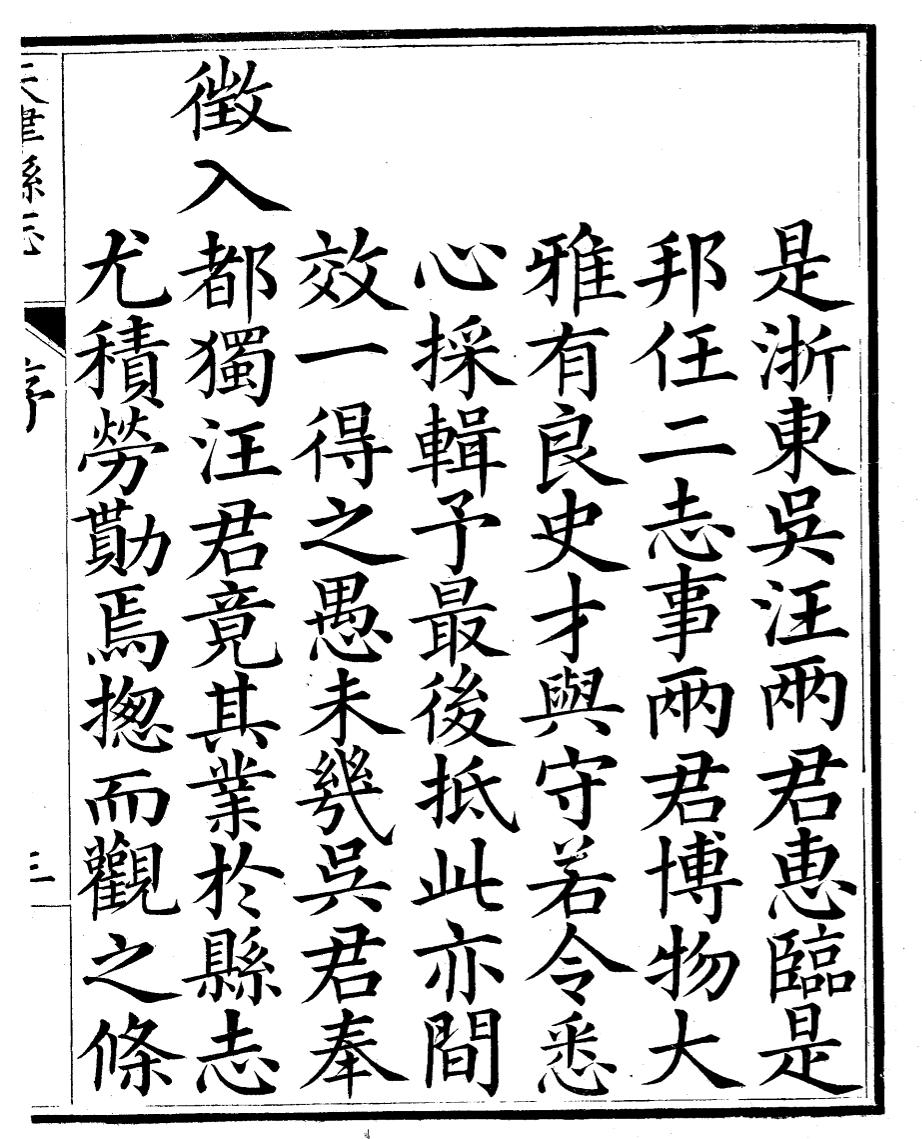 是浙東吳汪兩君惠臨是
邦任二志事兩君博物大
雅有良史才與守若令悉
心採輯予最後抵此亦間
效一得之愚未幾吳君奉
徵入都獨汪君竟其業於縣志
尤積勞勩焉揔而觀之條
天津縣志
序
三